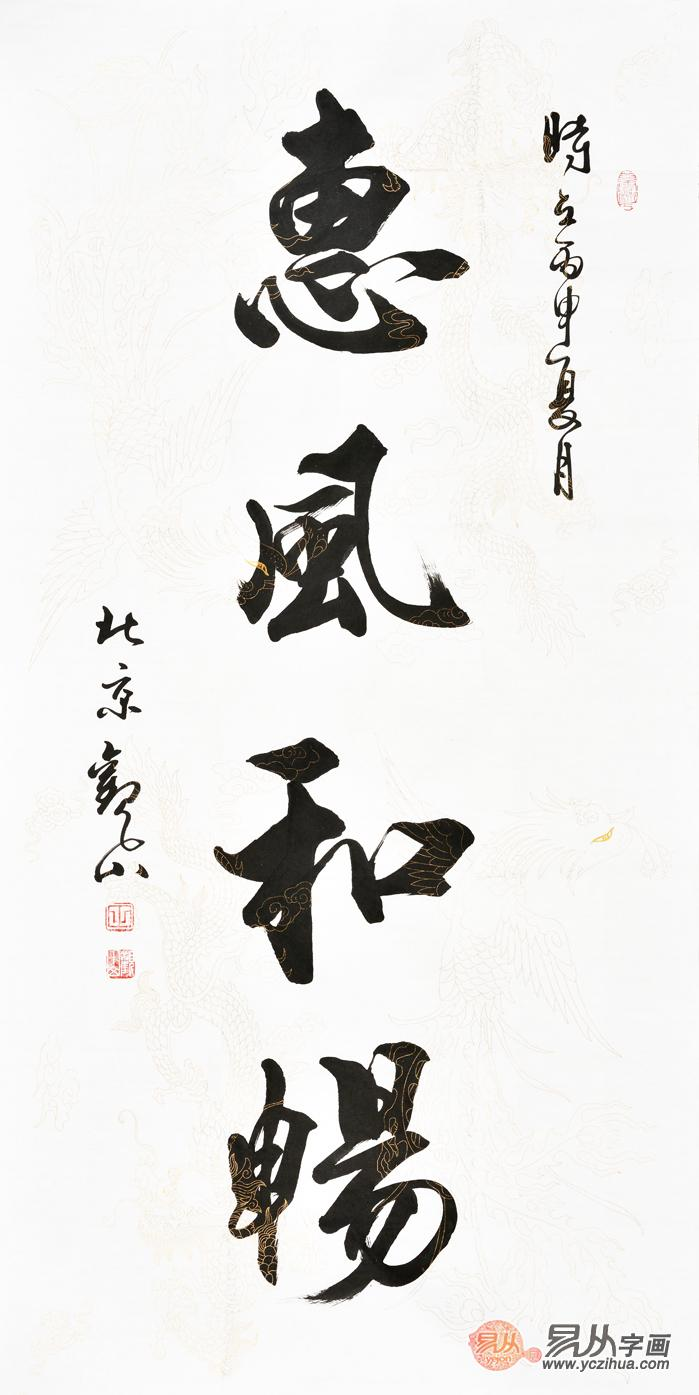 時在丙申夏月
惠風和暢
北京觀山
易从
yycon
易从字画
www.yczihua.com